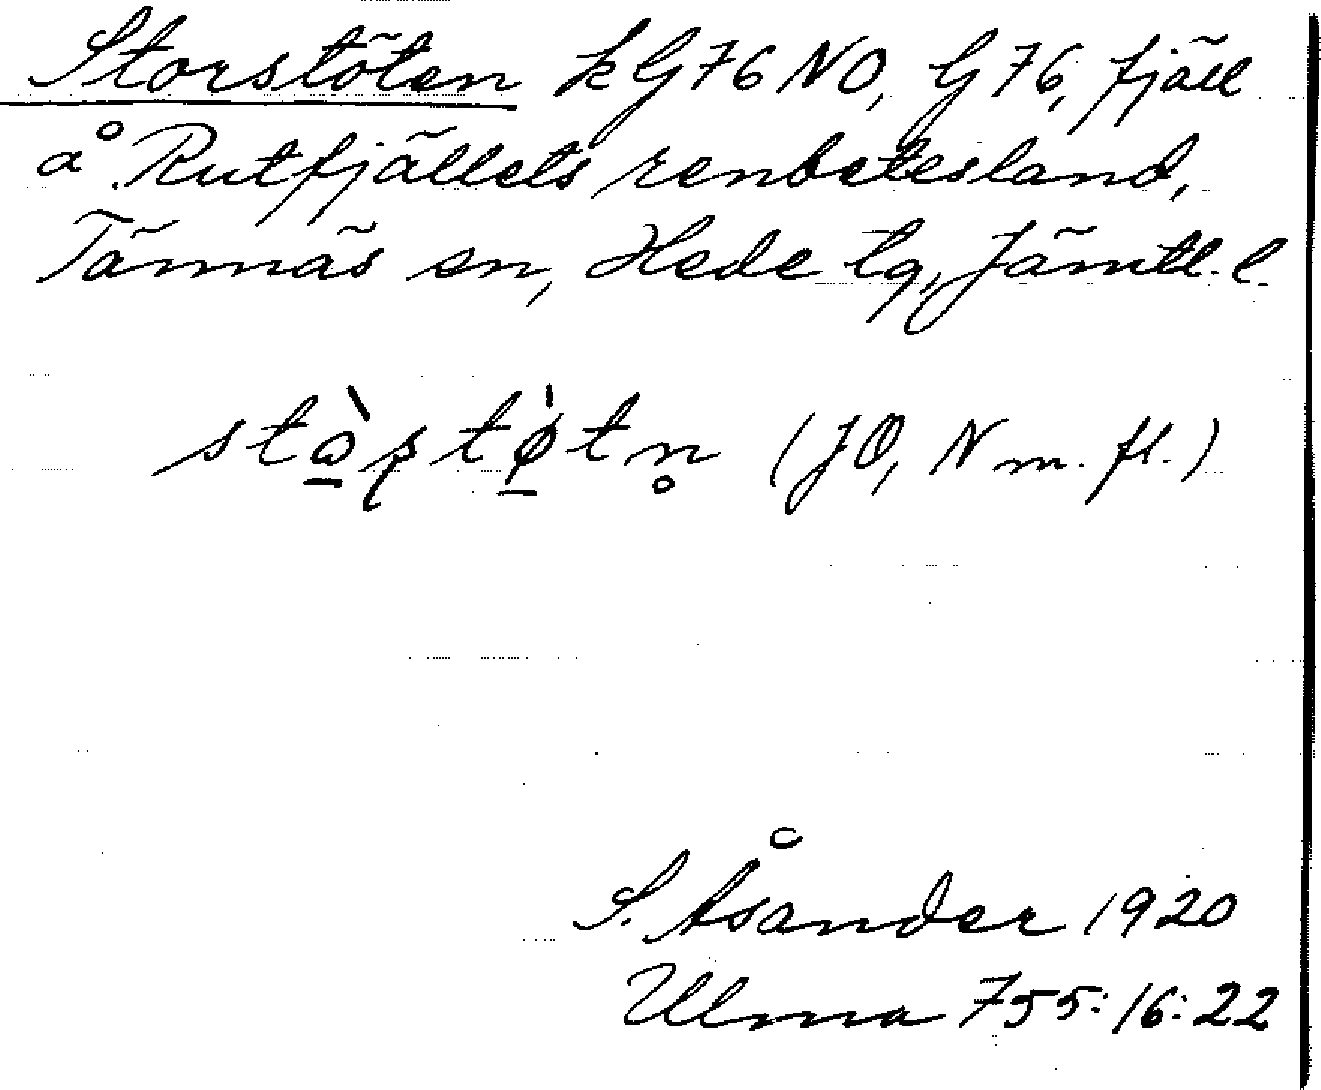 Storstöten k G76 NO, G 76, fjäll
å Rutfjällets renbetesland,
Tännäs sn, Hede tg, Jämtl. l.
stò̠ʂtø̠̀tn̥ (JO, N m. fl.)
S. Åsander 1920
Ulma 755:16:22